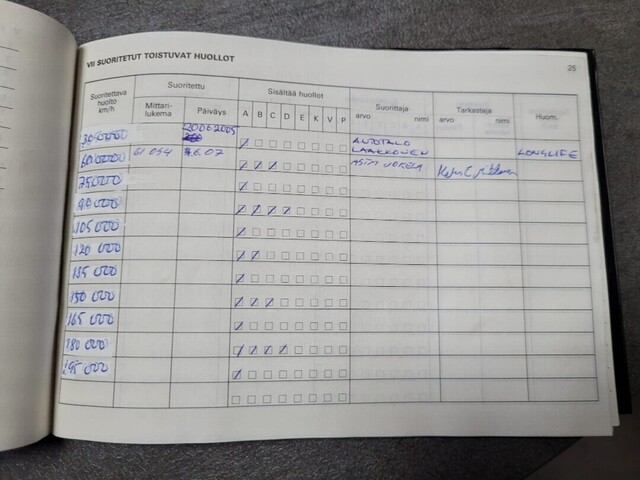 VII SUORITETUT TOISTUVAT HUOLLOT
25
Suoritettava huolto km/h
Suoritettu
Mittari-lukema
Päiväys
Sisältää huollot
A B C D E K V P
Suorittaja
arvo nimi
Tarkastaja
arvo nimi
Huom.
20062005 AUTOTALO LAAKKONEN
60.000 61 054 6.07 LONGLIFE
75000
90 000
105 000
120 000
135 000
150 000
165 000
180 000
195 000